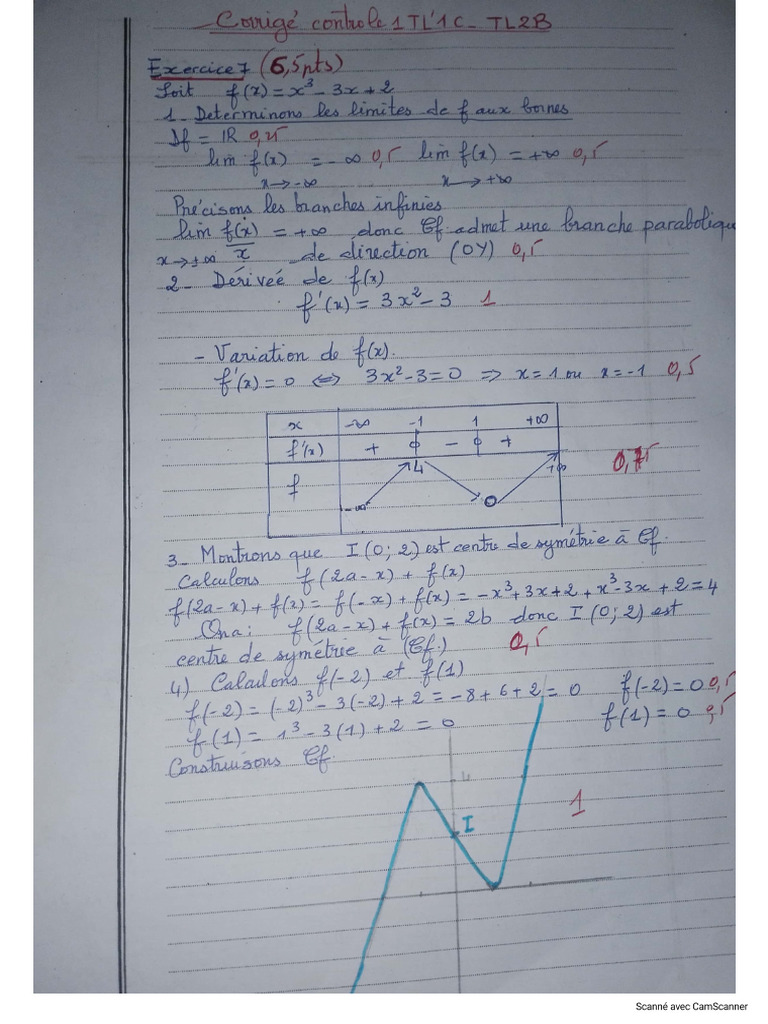 Corrigé controle 1 TL'1C - TL2B
Exercice 7 (6,5pts)
Soit f(x) = x³ - 3x + 2
1 - Determinons les limites de f aux bornes
Df = IR 0,25
lim f(x) = -∞ 0,5 lim f(x) = +∞ 0,5
x→-∞ x→+∞
Précisons les branches infinies
lim f(x)/x = +∞ donc Cf admet une branche parabolique
x→±∞ de direction (OY) 0,5
2 - Dérivée de f(x)
f'(x) = 3x² - 3 1
- Variation de f(x).
f'(x) = 0 ⇔ 3x² - 3 = 0 ⇒ x = 1 ou x = -1 0,5
x -∞ -1 1 +∞
f'(x) + 0 - 0 +
f -∞ 4 0 +∞ 0,75
3 - Montrons que I(0; 2) est centre de symétrie à Cf.
Calculons f(2a - x) + f(x)
f(2a - x) + f(x) = f(-x) + f(x) = -x³ + 3x + 2 + x³ - 3x + 2 = 4
On a: f(2a - x) + f(x) = 2b donc I(0; 2) est
centre de symétrie à (Cf.) 0,5
4) Calculons f(-2) et f(1)
f(-2) = (-2)³ - 3(-2) + 2 = -8 + 6 + 2 = 0 f(-2) = 0 0,5
f(1) = 1³ - 3(1) + 2 = 0 f(1) = 0 0,5
Construisons Cf.
4
1
I
Scanné avec CamScanner